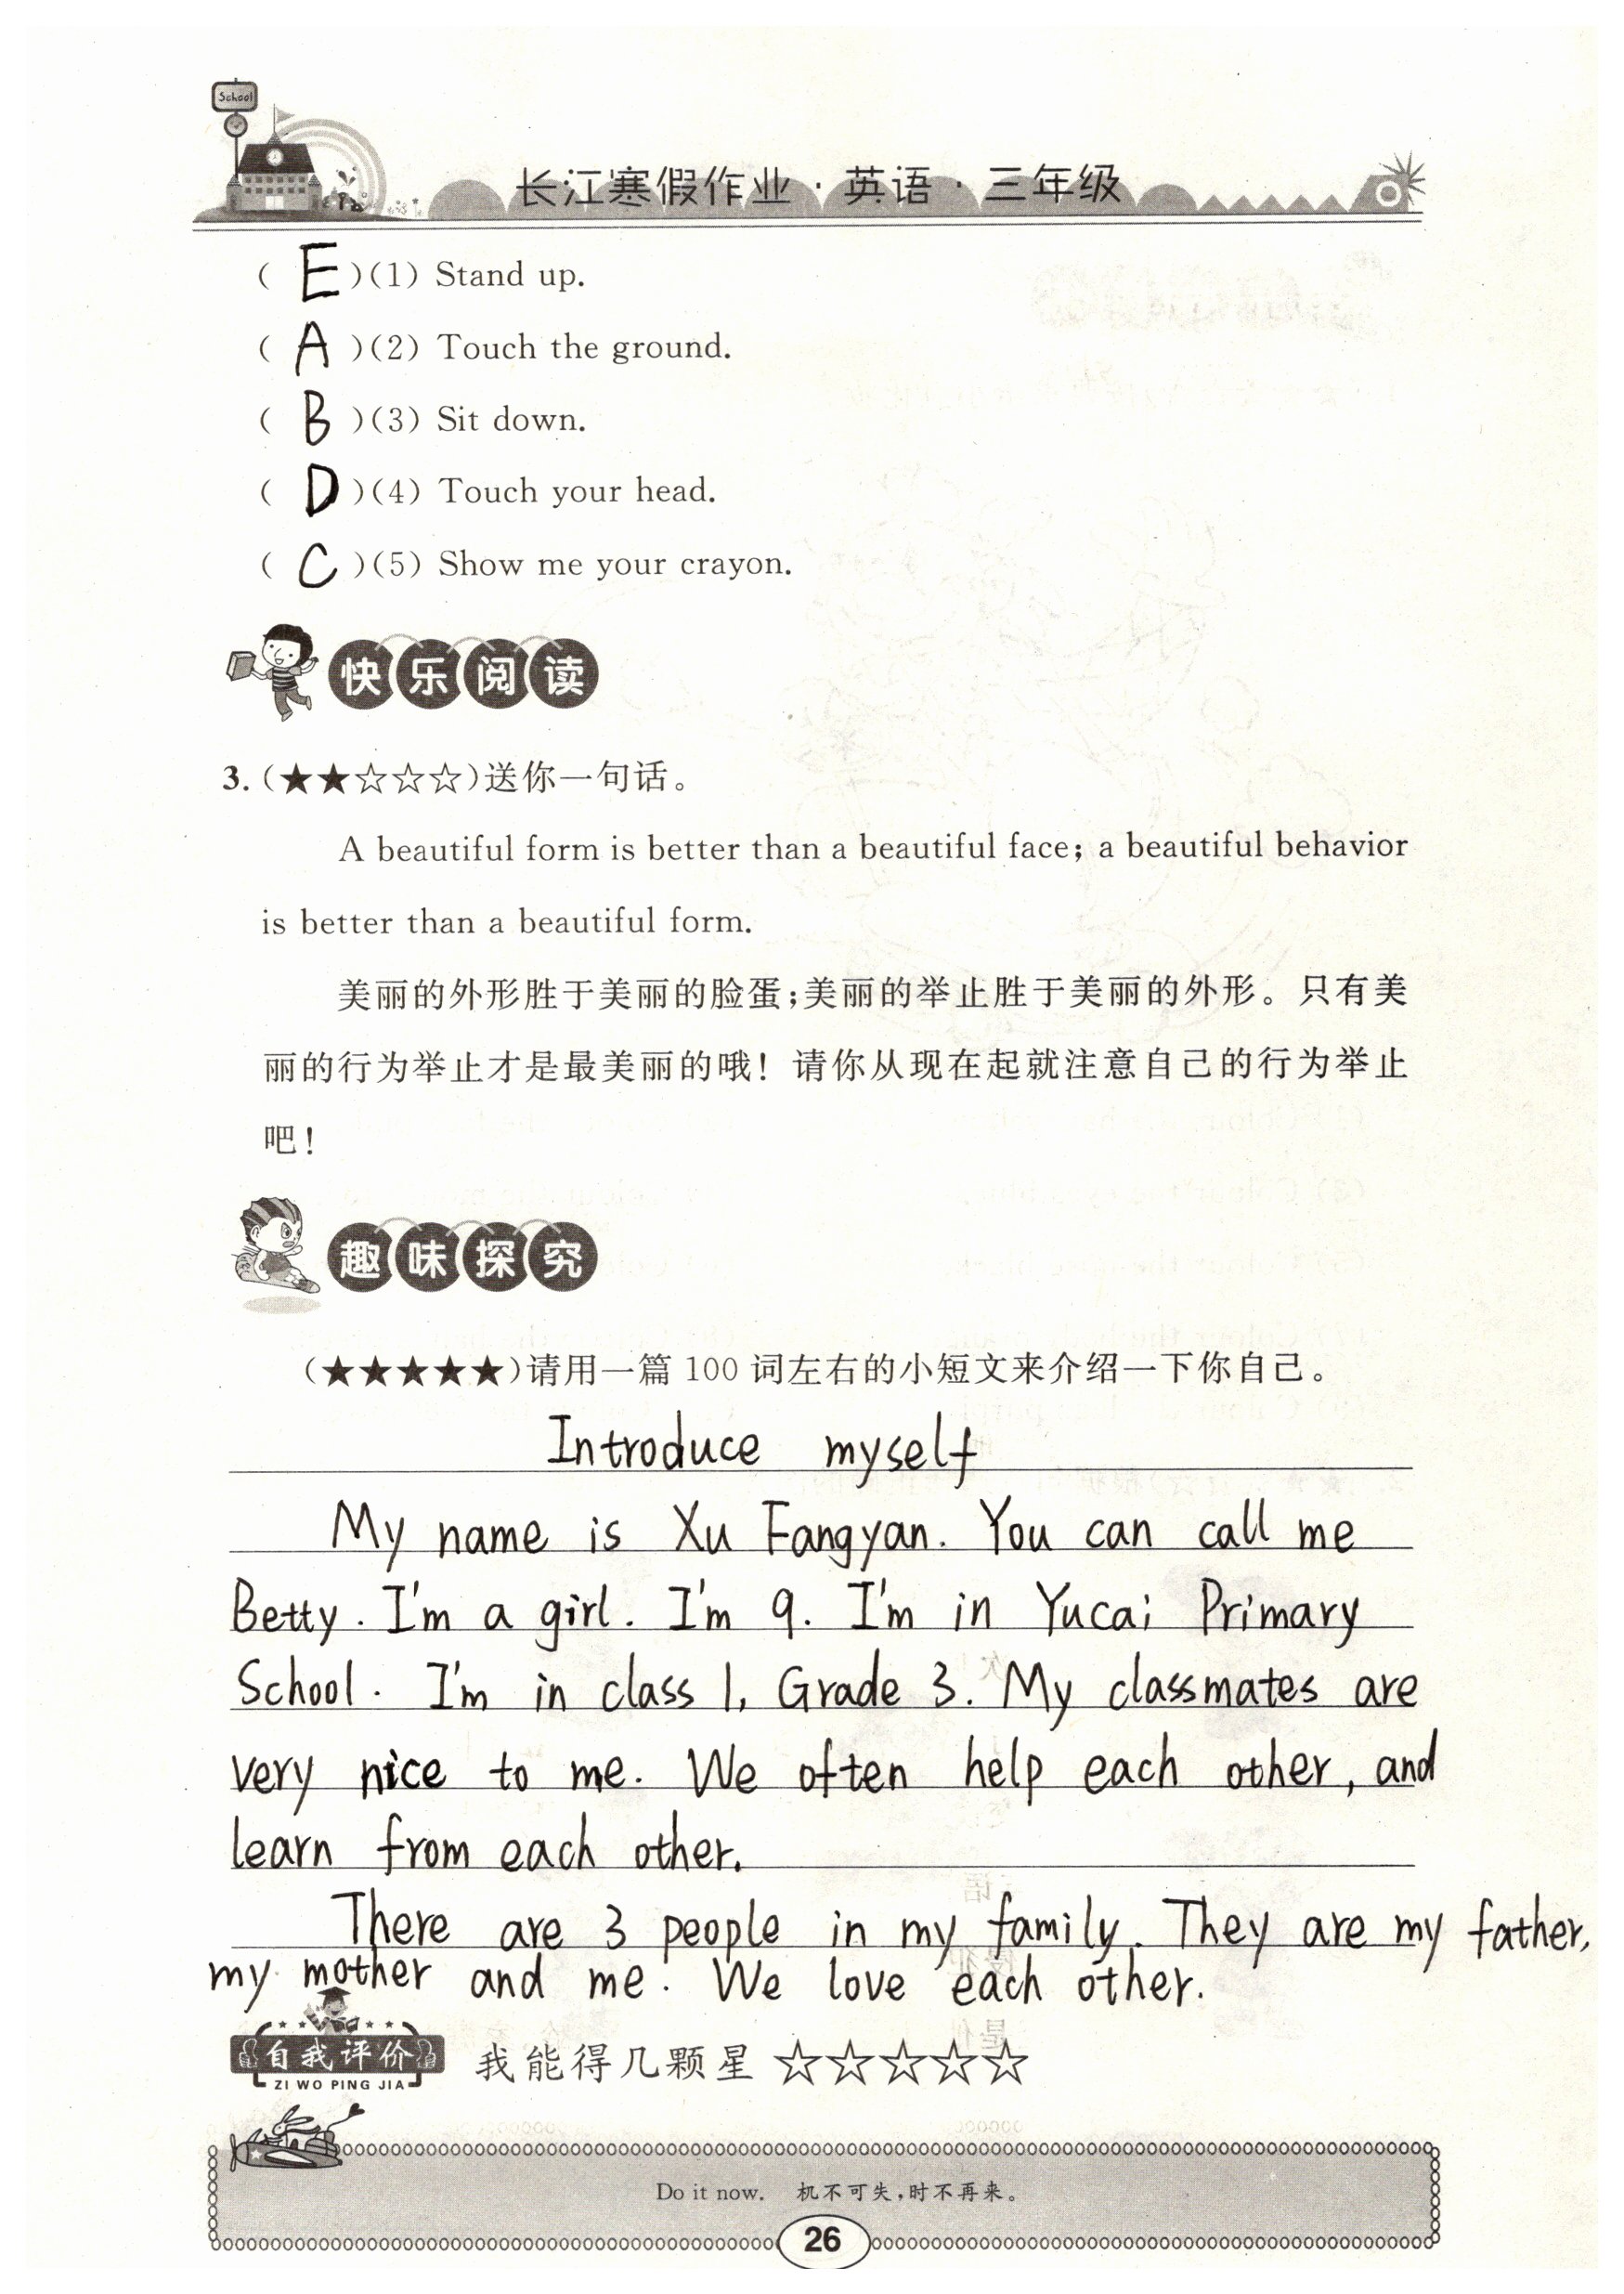 School
长江寒假作业·英语·三年级
( E )(1) Stand up.
( A )(2) Touch the ground.
( B )(3) Sit down.
( D )(4) Touch your head.
( C )(5) Show me your crayon.
快乐阅读
3.(★★☆☆☆)送你一句话。
A beautiful form is better than a beautiful face; a beautiful behavior
is better than a beautiful form.
美丽的外形胜于美丽的脸蛋;美丽的举止胜于美丽的外形。只有美
丽的行为举止才是最美丽的哦!请你从现在起就注意自己的行为举止
吧!
趣味探究
(★★★★★)请用一篇 100 词左右的小短文来介绍一下你自己。
Introduce myself
My name is Xu Fangyan. You can call me
Betty. I'm a girl. I'm 9. I'm in Yucai Primary
School. I'm in class 1, Grade 3. My classmates are
very nice to me. We often help each other, and
learn from each other.
There are 3 people in my family. They are my father,
my mother and me. We love each other.
自我评价 我能得几颗星 ☆☆☆☆☆
ZI WO PING JIA
Do it now. 机不可失,时不再来。
26